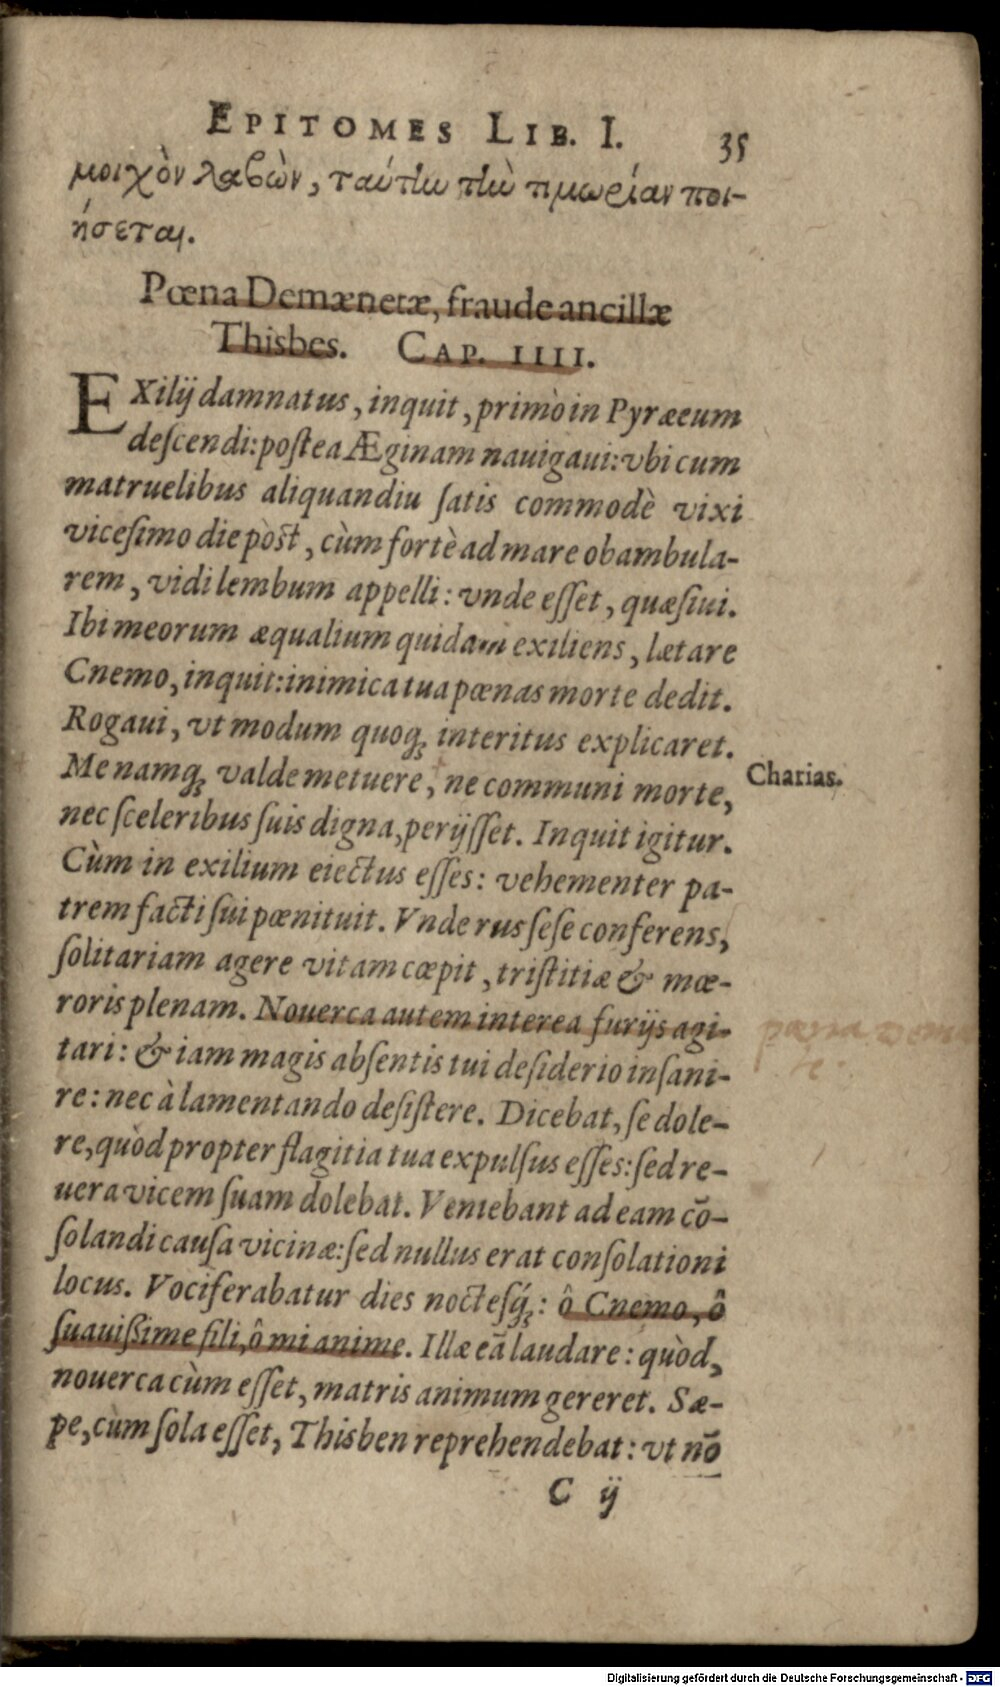 EPITOMES LIB. I. 35
μοιχὸν λαβὼν, ταύτην τὴν τιμωρίαν ποι-
ήσεται.
Pœna Demænetæ, fraude ancillæ
Thisbes. CAP. IIII.
EXilij damnatus, inquit, primò in Pyræeum
deſcendi: poſtea Æginam nauigaui: vbi cum
matruelibus aliquandiu ſatis commodè vixi
viceſimo die pòst, cùm fortè ad mare obambula-
rem, vidi lembum appelli: vnde eſſet, quæſiui.
Ibi meorum æqualium quidam exiliens, lætare
Cnemo, inquit: inimica tua pœnas morte dedit.
Rogaui, vt modum quoqꝫ interitus explicaret.
Me namqꝫ valde metuere, ne communi morte,
Charias.
nec ſceleribus ſuis digna, perijſſet. Inquit igitur.
Cùm in exilium eiectus eſſes: vehementer pa-
trem facti ſui pœnituit. Vnde rus ſeſe conferens,
ſolitariam agere vitam cœpit, triſtitiæ & mœ-
roris plenam. Nouerca autem interea furijs agi-
tari: & iam magis abſentis tui deſiderio inſani-
re: nec à lamentando deſiſtere. Dicebat, ſe dole-
re, quòd propter flagitia tua expulſus eſſes: ſed re-
uera vicem ſuam dolebat. Veniebant ad eam cō-
ſolandi cauſa vicinæ: ſed nullus erat conſolationi
locus. Vociferabatur dies noctesq́ꝫ: ô Cnemo, ô
ſuauißime fili, ô mi anime. Illæ eā laudare: quòd,
nouerca cùm eſſet, matris animum gereret. Sæ-
pe, cùm ſola eſſet, Thisben reprehendebat: vt nō
C ij
Digitalisierung gefördert durch die Deutsche Forschungsgemeinschaft - DFG